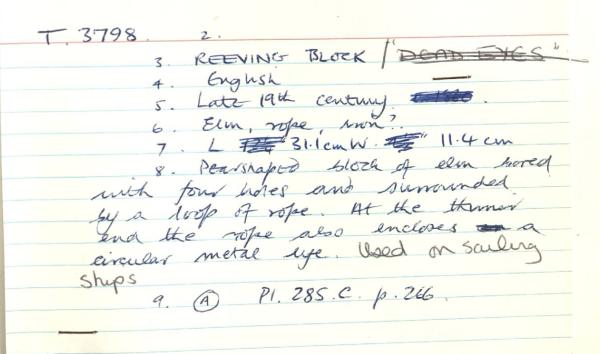 T. 3798. 2.
3. REEVING BLOCK / "DEAD EYES"
4. English
5. Late 19th century.
6. Elm, rope, iron?
7. L 31.1cm W. 11.4 cm
8. Pearshaped block of elm bored
with four holes and surrounded
by a loop of rope. At the thinner
end the rope also encloses a
circular metal eye. Used on sailing
ships
9. A Pl. 285. C. p. 266.